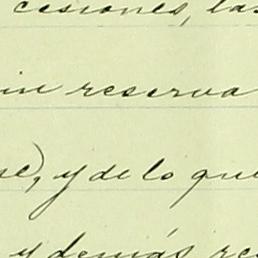 cesiones, las
sin reserva
se), y de lo que
y demás re